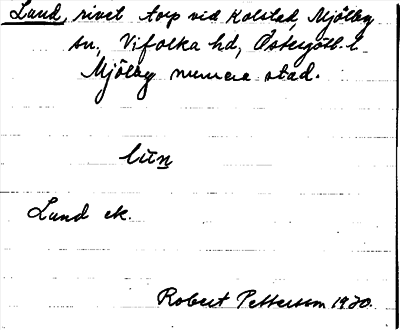 Lund, rivet torp vid Kolstad, Mjölby
sn, Vifolka hd, Östergötl. l.
Mjölby numera stad.
lun
Lund ek.
Robert Pettersson 1930.